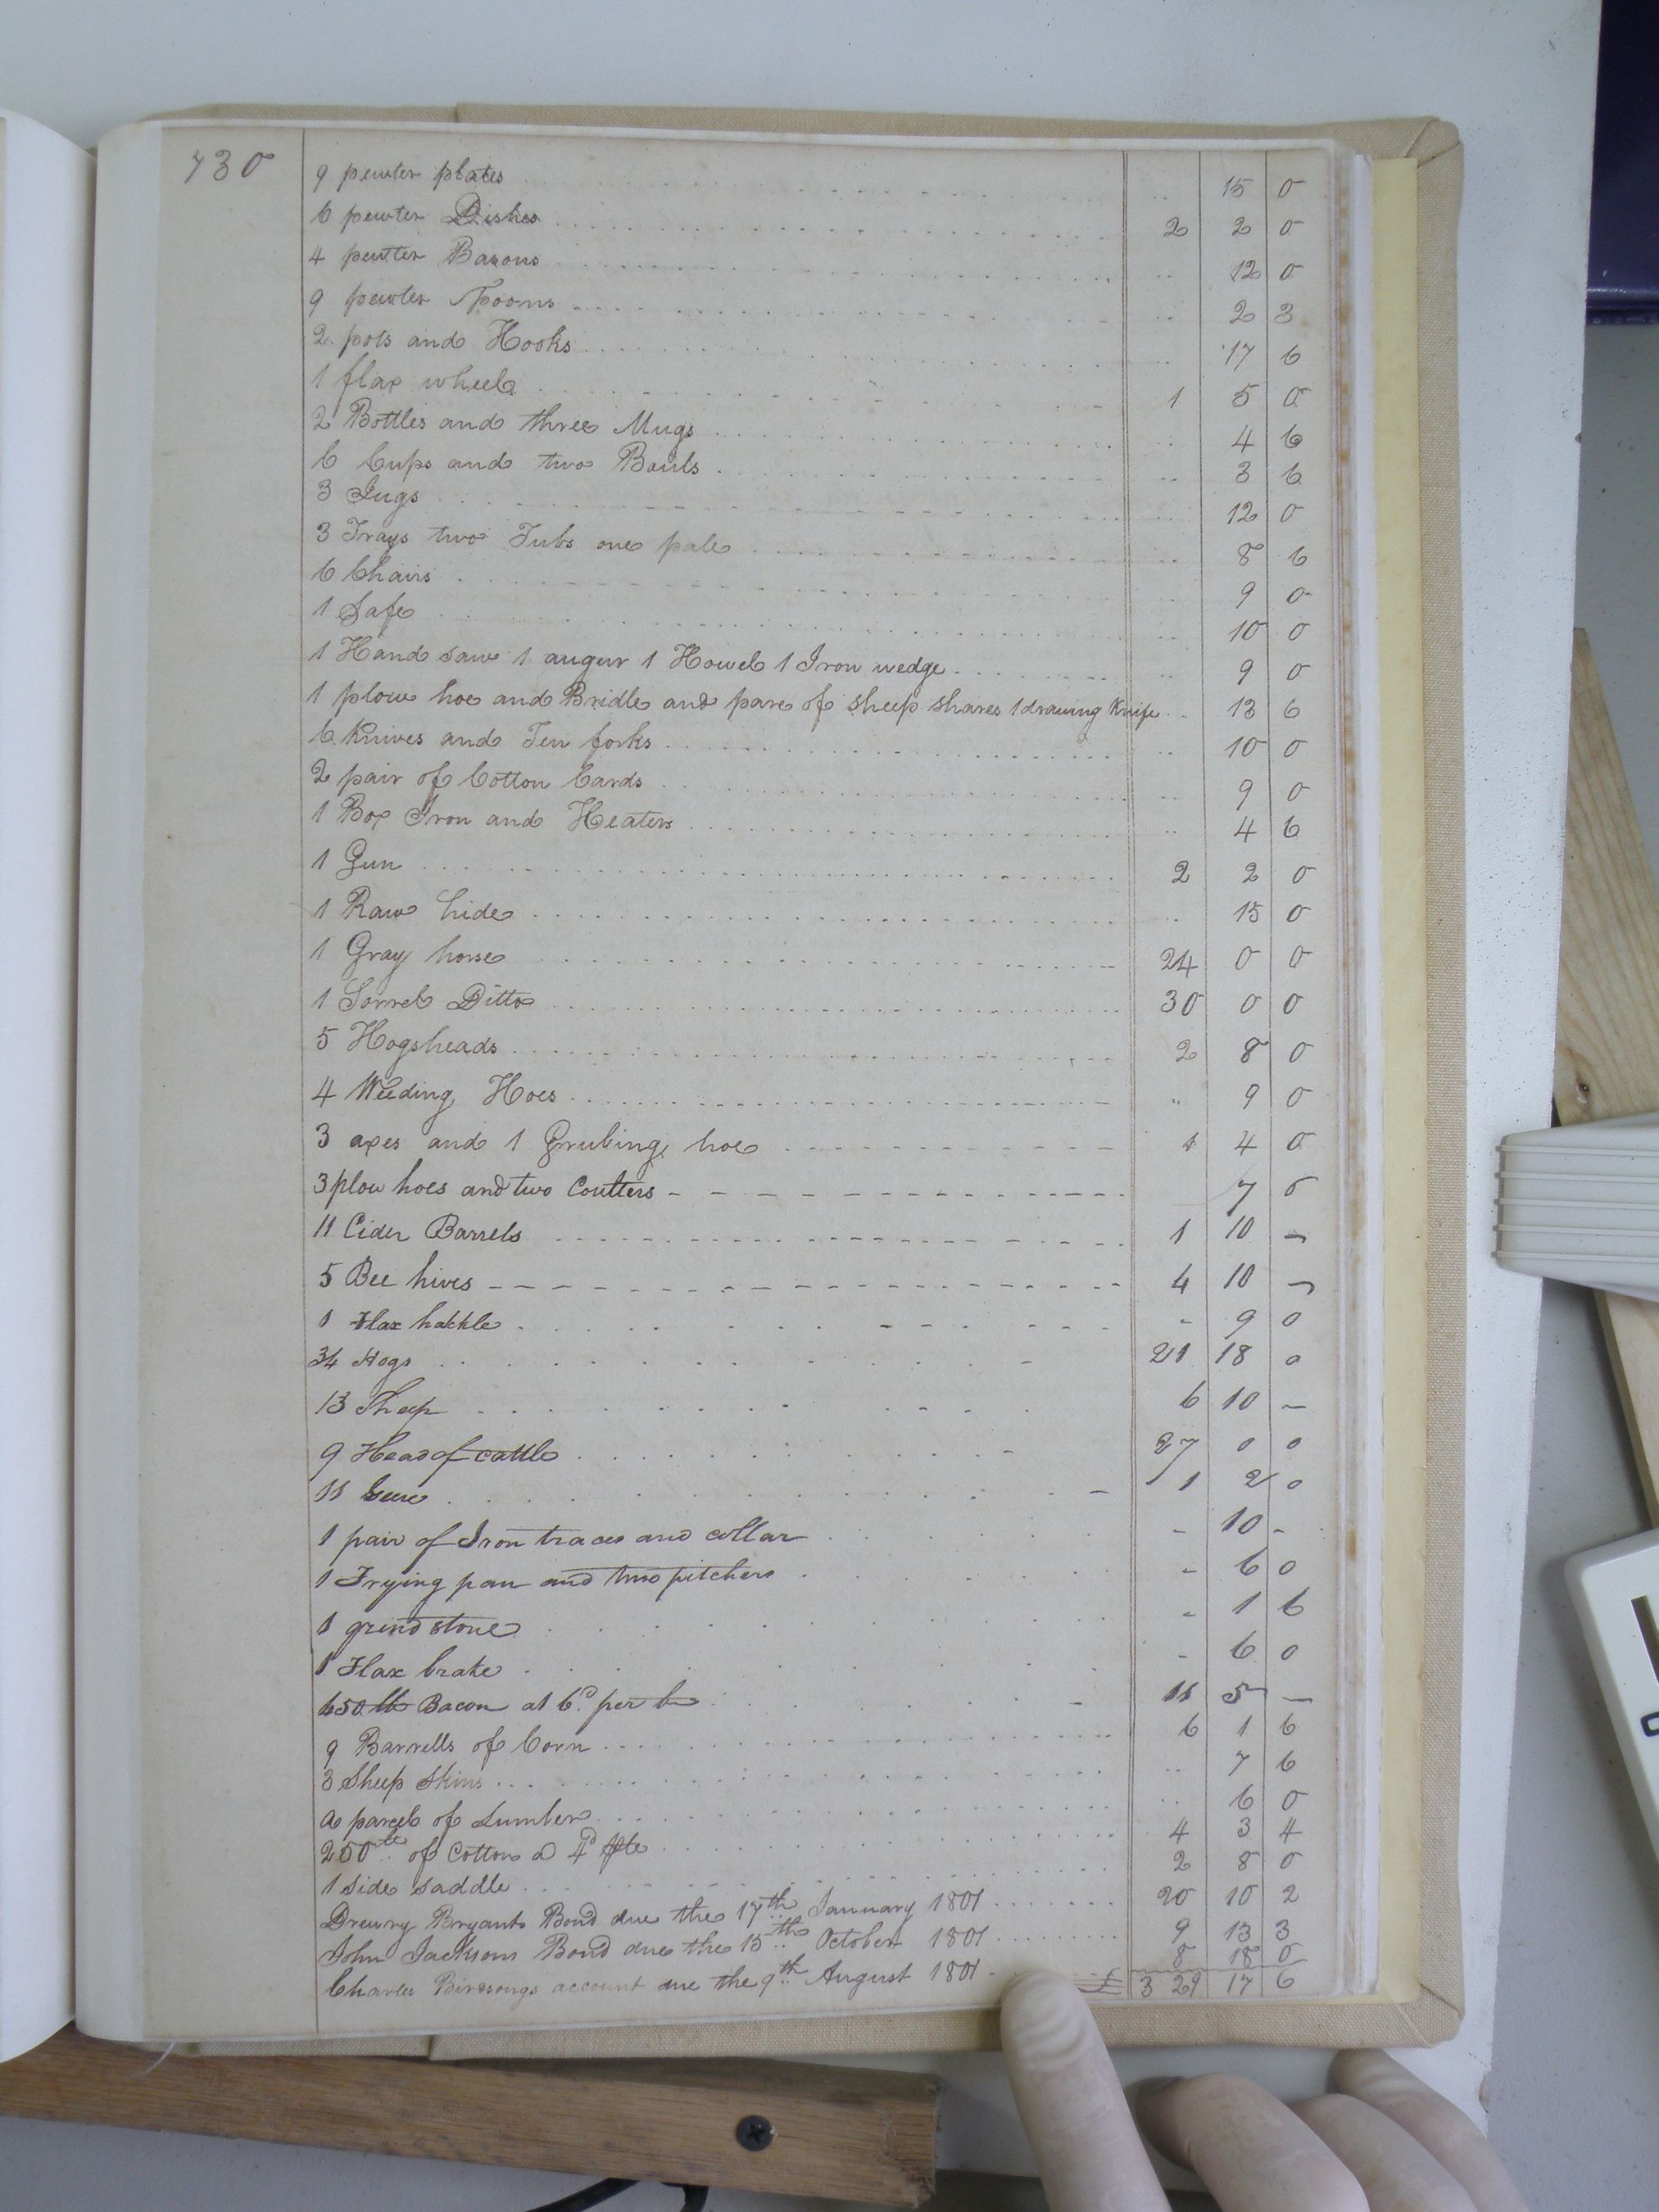 730
9 pewter plates 15 0
6 pewter Dishes 2 2 0
4 pewter Basons 12 0
9 pewter Spoons 2 3
2 pots and Hooks 17 6
1 flax wheel 1 5 0
2 Bottles and three Mugs 4 6
6 Cups and two Bouls 3 6
3 Jugs 12 0
3 Trays two Tubs one pale 8 6
6 Chairs 9 0
1 Safe 10 0
1 Hand saw 1 augur 1 Howel 1 Iron wedge 9 0
1 plow hoe and Bridle and pare of sheep shares 1 drawing Knife 13 6
6 Knives and Ten forks 10 0
2 pair of Cotton Cards 9 0
1 Box Iron and Heaters 4 6
1 Gun 2 2 0
1 Raw hide 15 0
1 Gray horse 24 0 0
1 Sorrel Ditto 30 0 0
5 Hogsheads 2 8 0
4 Weeding Hoes 9 0
3 axes and 1 Grubing hoe 1 4 0
3 plow hoes and two Coulters 7 0
11 Cider Barrels 1 10 -
5 Bee hives 4 10 -
1 Flax hakkle - 9 0
34 Hogs 21 18 0
13 Sheep 6 10 -
9 Head of cattle 27 0 0
11 Geese 1 2 0
1 pair of Iron traces and collar - 10 -
1 Frying pan and two pitchers - 6 0
1 grind stone - 1 6
1 Flax brake - 6 0
450 lb Bacon at 6d per lb 11 5 -
9 Barrells of Corn 6 1 6
3 Sheep Skins 7 6
a parcel of Lumber 6 0
250 lb of Cotton a 4d 4 3 4
1 side saddle 2 8 0
Drewry Bryants Bond due the 17th January 1801 20 10 2
John Jacksons Bond due the 15th October 1801 9 13 3
Charles Birdsongs account due the 9th August 1801 8 18 0
£ 329 17 6